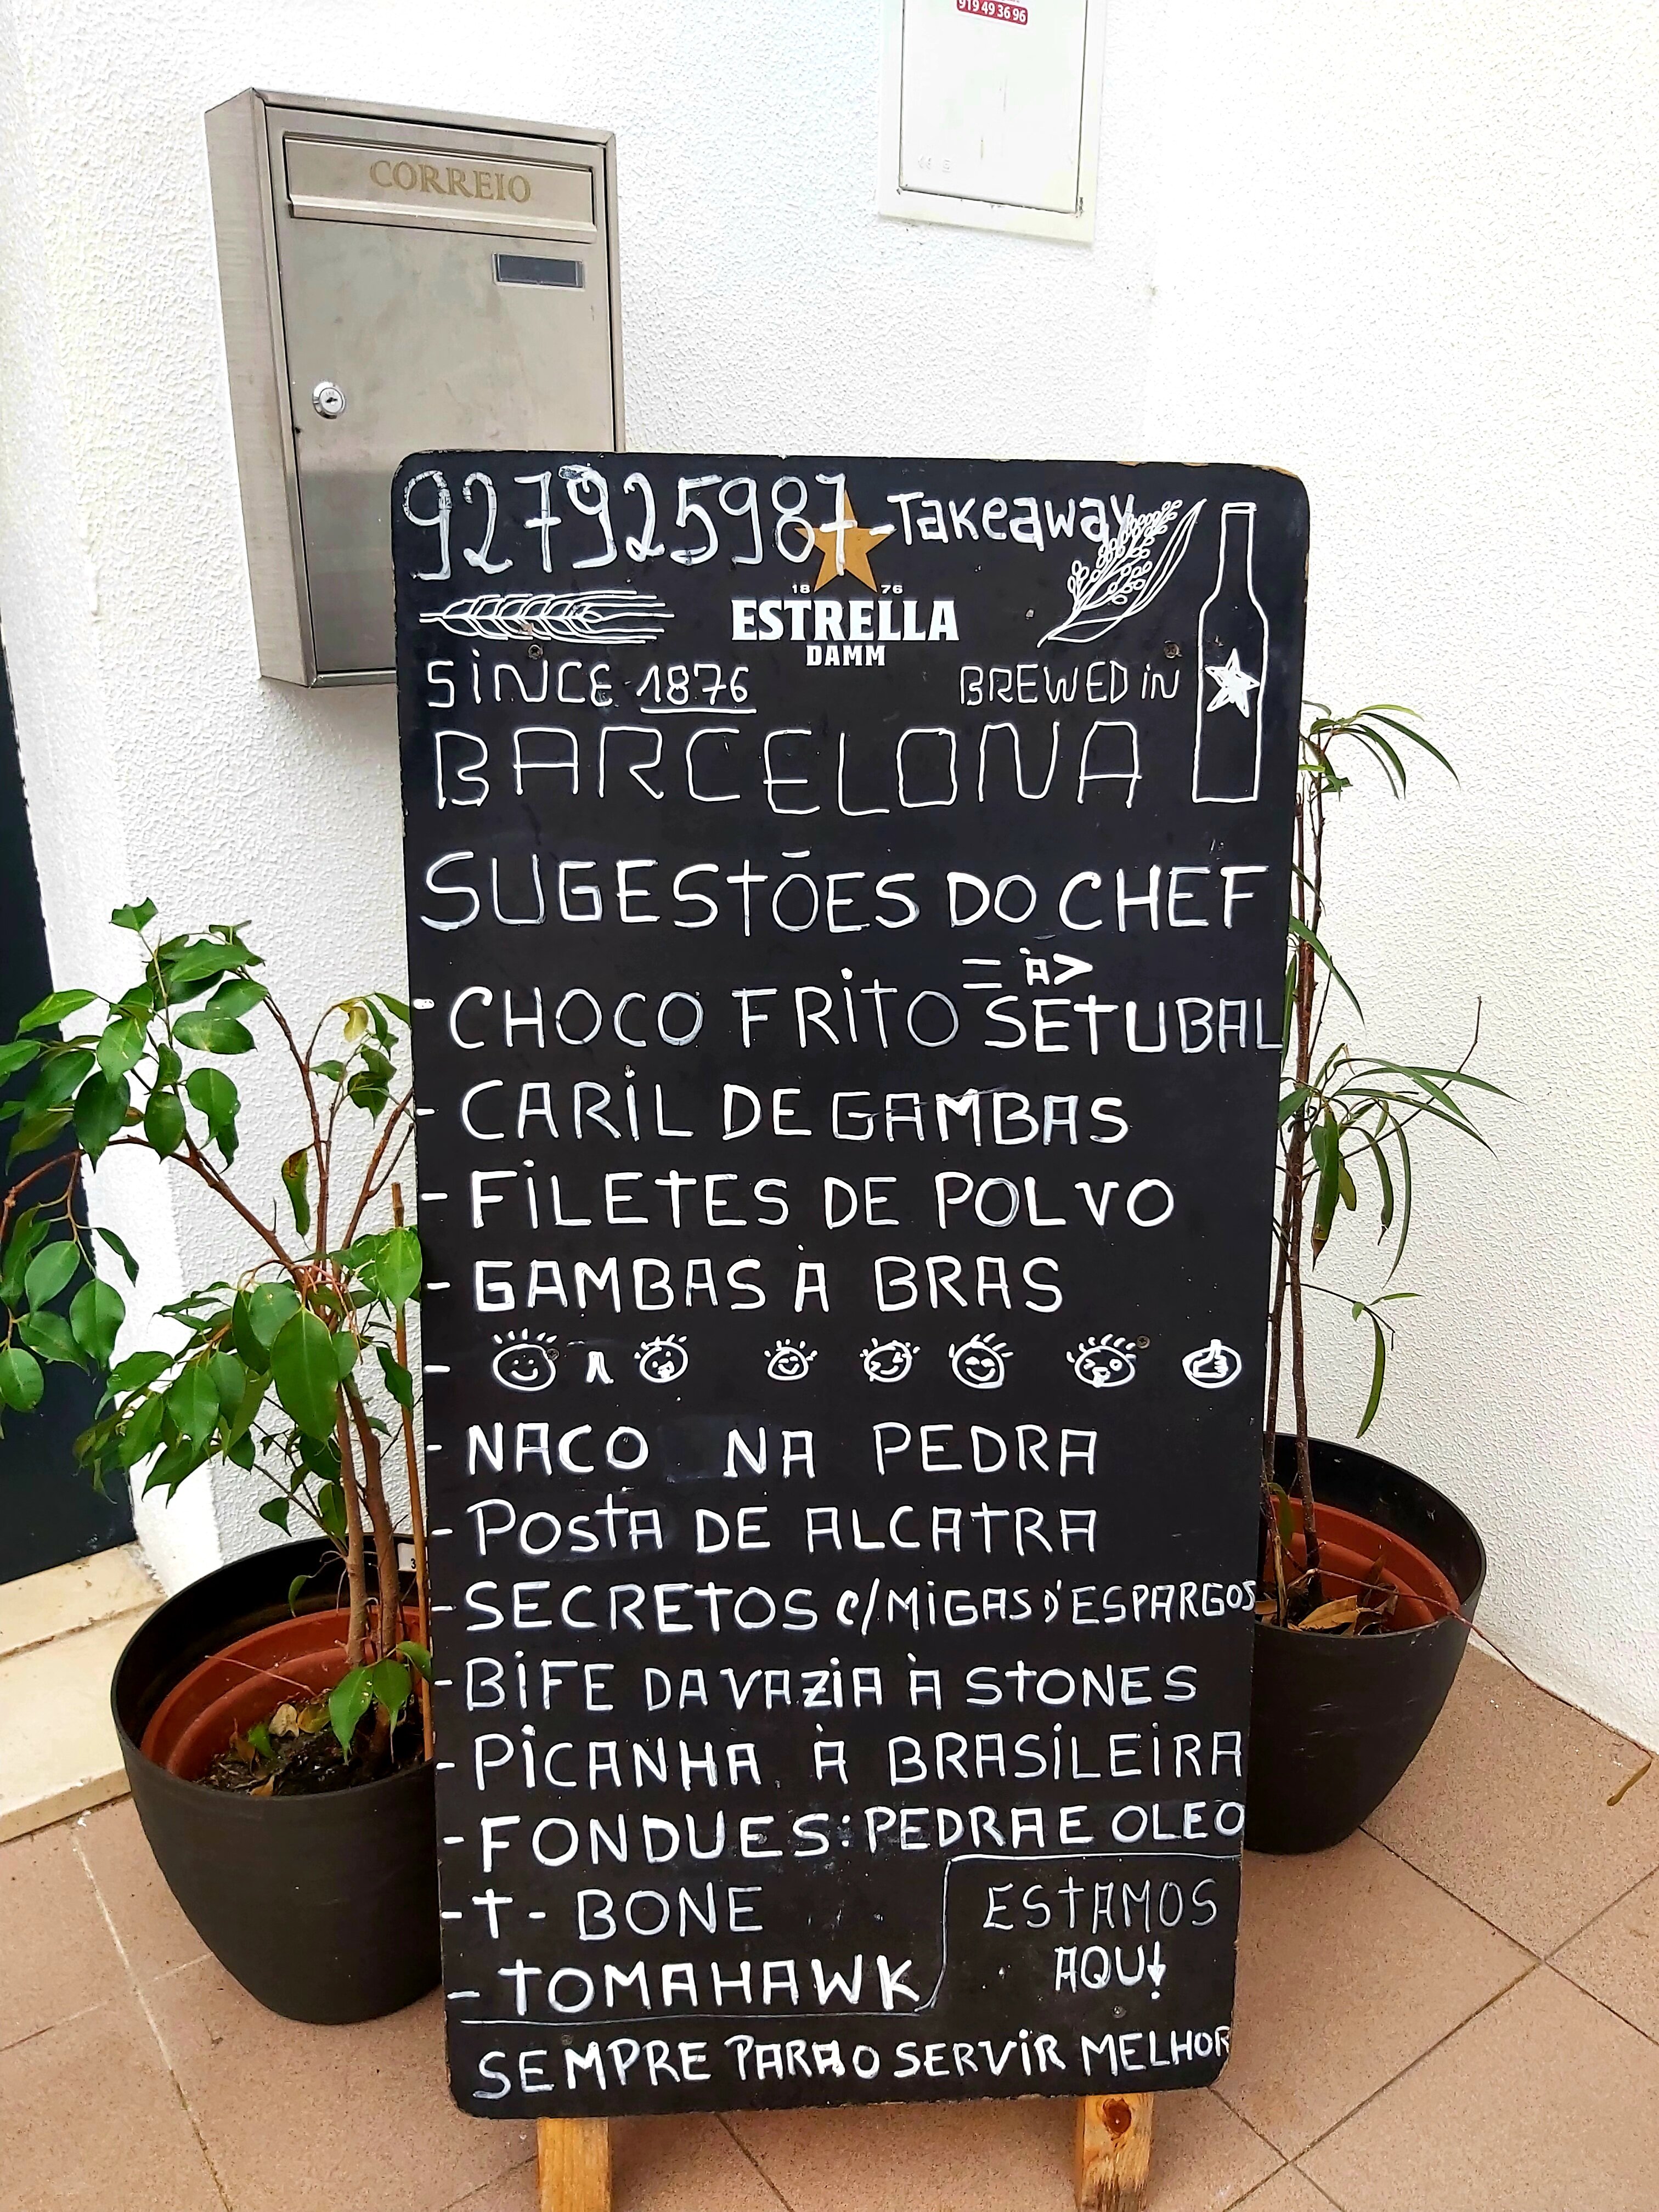 919 49 36 96
CORREIO
927925987-Takeaway
18 76
ESTRELLA
DAMM
SINCE 1876 BREWED IN
BARCELONA
SUGESTÕES DO CHEF
= À>
- CHOCO FRITO SETUBAL
- CARIL DE GAMBAS
- FILETES DE POLVO
- GAMBAS À BRAS
-
- NACO NA PEDRA
- POSTA DE ALCATRA
- SECRETOS C/MIGAS D'ESPARGOS
- BIFE DA VAZIA À STONES
- PICANHA À BRASILEIRA
- FONDUES: PEDRA E OLEO
- T-BONE
- TOMAHAWK
ESTAMOS
AQUI
SEMPRE PARA O SERVIR MELHOR